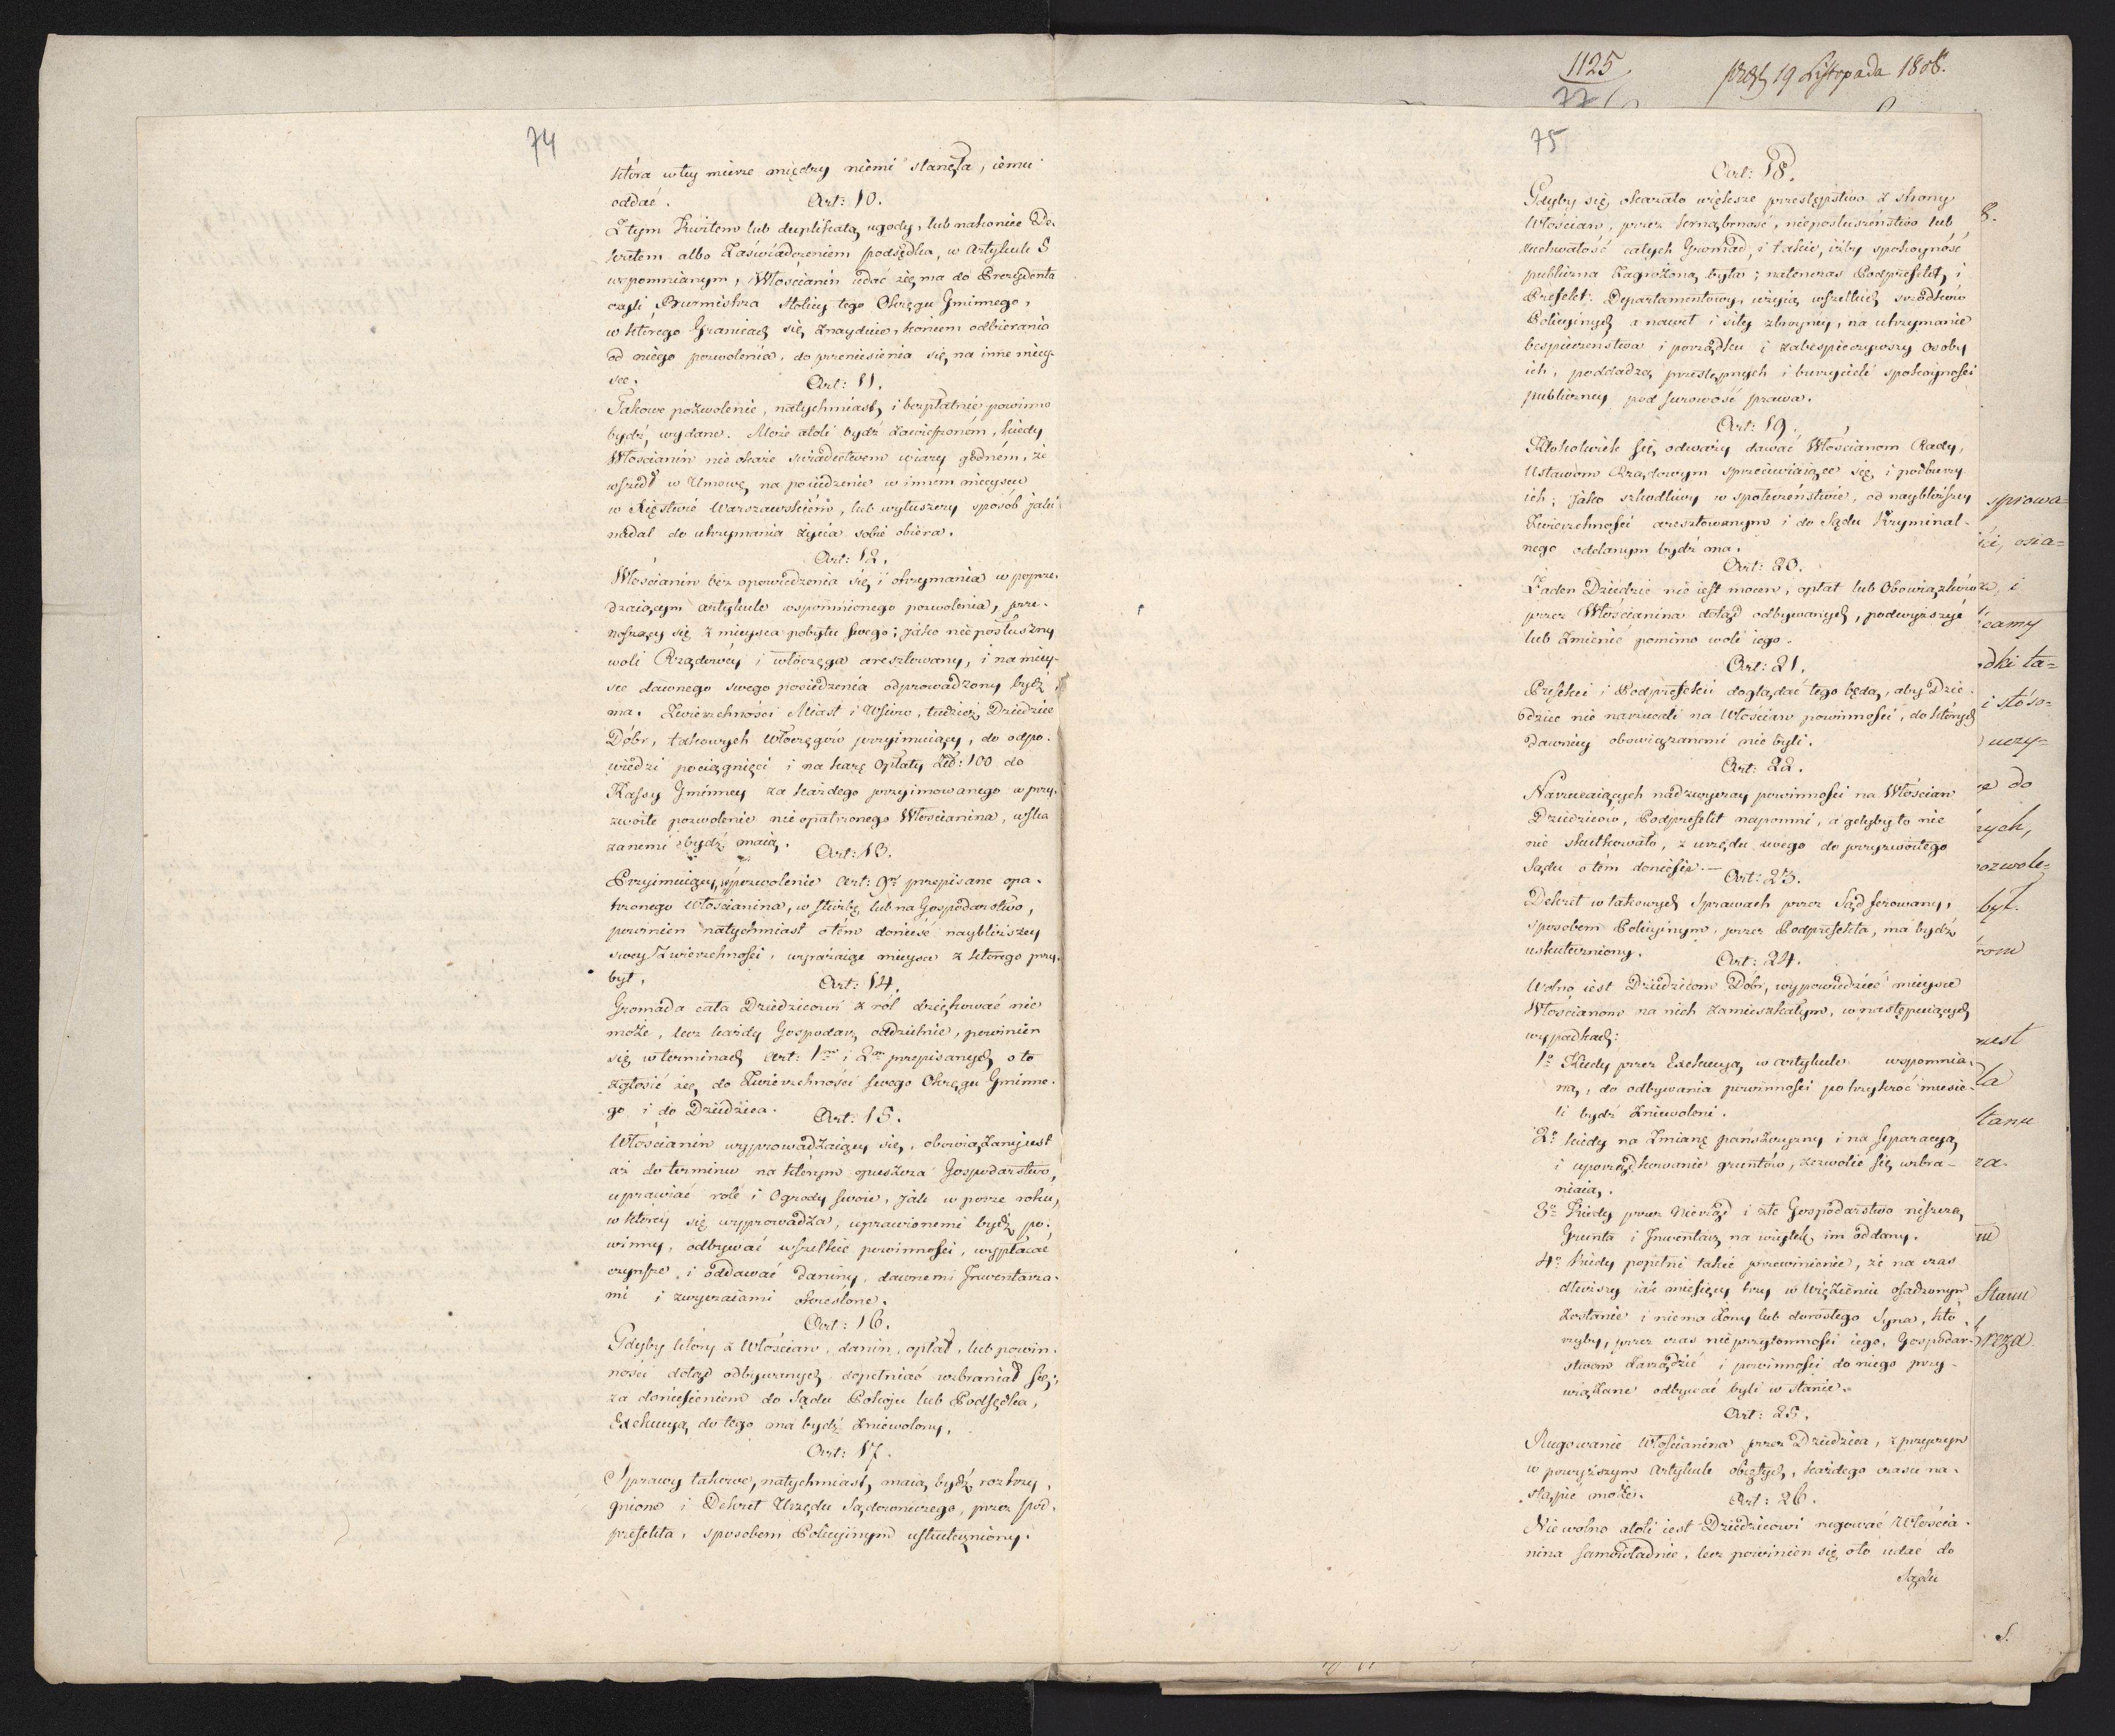 74
która w tey mierze między niemi stanęła, iemu
oddać. Art: 10.
Z tym Kwitem lub duplikatą ugody, lub nakoniec De-
kretem albo Zaświadczeniem podsędka, w Artykule 8
wspomnianym, Włościanin udać się ma do Prezydenta
czyli Burmistrza Stolicy tego Okręgu Gminnego,
w którego Granicach się znayduie, końcem odbierania
od niego pozwolenia, do przeniesienia się na inne miey-
sce. Art: 11.
Takowe pozwolenie, natychmiast, i bezpłatnie powinno
bydź wydane. Może atoli bydź zawieszoném, kiedy
Włościanin nie okaże świadectwem wiary godném, że
wszedł w Umowę na posiedzenie w innem mieyscu
w Xięstwie Warszawskiém, lub wytuszczy sposób jaki
nadal do utrzymania życia sobie obiera.
Art: 12.
Włościanin bez opowiedzenia się i otrzymania w poprze-
dzaiącym artykule wspomnionego pozwolenia, prze-
noszący się z mieysca pobytu swego; jako nieposłuszny
woli Rządowéy i włóczęga aresztowany, i na miey-
sce dawnego swego posiedzenia odprowadzony bydź
ma. Zwierzchności Miast i Wsiów, tudzież Dziedzice
Dóbr, takowych Włoczęgów przyimuiący, do odpo-
wiedzi pociągnięci i na karę Opłaty Zł: 100 do
Kassy Gminney za każdego przyimowanego w przy-
zwoite pozwolenie nie opatrzonego Włościanina, wska
zanemi bydź maią. Art: 13.
Przyimuiący, w pozwolenie Art: 9m przepisane opa-
trzonego Włościanina, w służbę lub na Gospodarstwo,
powinien natychmiast o tém donieść naybliższey
swey Zwierzchności, wyrażaiąc mieysce z którego przy-
był. Art: 14.
Gromada cała Dziedzicowi z ról dziękować nie
może, lecz każdy Gospodarz oddzielnie, powinien
się w terminach Art: 1mo i 2m przepisanych o to
zgłosić się, do Zwierzchności swego Okręgu Gminne-
go i do Dziedzica. Art: 15.
Włościanin wyprowadzaiący się, obowiązany iest
aż do terminu na którym opuszcza Gospodarstwo,
uprawiać role i Ogrody swoie, jak w porze roku,
w któréy się wyprowadza, uprawionemi bydź po-
winny, odbywać wszelkie powinności, wypłacać
czynsze, i oddawać daniny, dawnemi Inwentarza-
mi i zwyczaiami określone.
Art: 16.
Gdyby który z Włościan, danin, opłat, lub powin-
ności dotąd odbywanych dopełniać wzbraniał się;
za doniesieniem do Sądu Pokoju lub Podsędka,
Exekucyą do tego ma bydź zniewolony.
Art: 17.
Sprawy takowe, natychmiast, maią bydź roztrzy-
gnione i Dekret Urzędu Sądowniczego, przez pod-
prefekta, sposobem Policyinym uskuteczniony.
1125
77
przy 19 Listopada 1808.
75
Art: 18.
Gdyby się okazało większe przestępstwo z strony
Włościan, przez krnąbrność, nieposłuszeństwo lub
zuchwałość całych Gromad, i takie, iżby spokoyność
publiczna zagrożoną była; natenczas Podprefekt, i
Prefekt Departamentowy, użyią wszelkich srzodków
Policyinych a nawet i siły zbroyney, na utrzymanie
bezpieczeństwa i porządku i zabespieczywszy osoby
ich, poddadzą przestępnych i burzycieli spokoyności
publiczney pod surowość prawa.
Art: 19.
Ktokolwiek się odważy dawać Włościanom Rady,
Ustawom Rządowym sprzeciwiaiące się, i podburzy
ich; jako szkodliwy w społeczeństwie, od naybliższey
Zwierzchności aresztowanym i do Sądu Kryminal-
nego oddanym bydź ma.
Art: 20.
Żaden Dziedzic nie iest mocen, opłat lub Obowiązków
przez Włościanina dotąd odbywanych, podwyższyć
lub zmienić pomimo woli iego.
Art: 21.
Prefekci i Podprefekci doglądać tego będą, aby Dzie-
dzice nie narzucali na Włościan powinności, do których
dawniey obowiązanemi nie byli.
Art: 22.
Narzucaiących nadzwyczay powinności na Włościan
Dziedziców, Podprefekt napomni, a gdyby to nic
nie skutkowało, z urzędu swego do przyzwoitego
Sądu o tém doniesie.— Art: 23.
Dekret w takowych Sprawach przez Sąd ferowany,
sposobem Policyinym, przez Podprefekta, ma bydź
uskuteczniony. Art: 24.
Wolno iest Dziedzicom Dóbr, wypowiedzieć mieysce
Włościanom na nich zamieszkałym, w następuiących
wypadkach:
1o Kiedy przez Exekucyą w artykule wspomnia-
ną, do odbywania powinności po trzykroć musie-
li bydź zniewoleni.
2o kiedy na Zmianę pańszczyzny i na Separacyą
i uporządkowanie gruntów, zezwolić się wzbra-
niaią.
3o Kiedy przez Nierząd i złe Gospodarstwo niszczą
Grunta i Inwentarz na użytek im oddany.
4o Kiedy popełni takie przewinienie, że na czas
dłuższy iak miesięcy trzy w Więzieniu osadzonym
zostanie i niema żony lub dorosłego Syna, któ-
rzyby, przez czas nieprzytomności iego, Gospodar-
stwem zarządzić i powinności do niego przy-
wiązane odbywać byli w stanie.
Art: 25.
Rugowanie Włościanina przez Dziedzica, z przyczyn
w powyższym Artykule obiętych, każdego czasu na-
stąpić może. Art: 26.
Nie wolno atoli iest Dziedzicowi rugować Włościa-
nina samowładnie, lecz powinien się o to udać do
Sądu
8.
sprowa=
ści, osia=
i
camy
dki ta=
i stóso=
uczy=
do
rych,
ozwole=
był.
rom
la
Stanu
za.
Stanu
reza.
S.